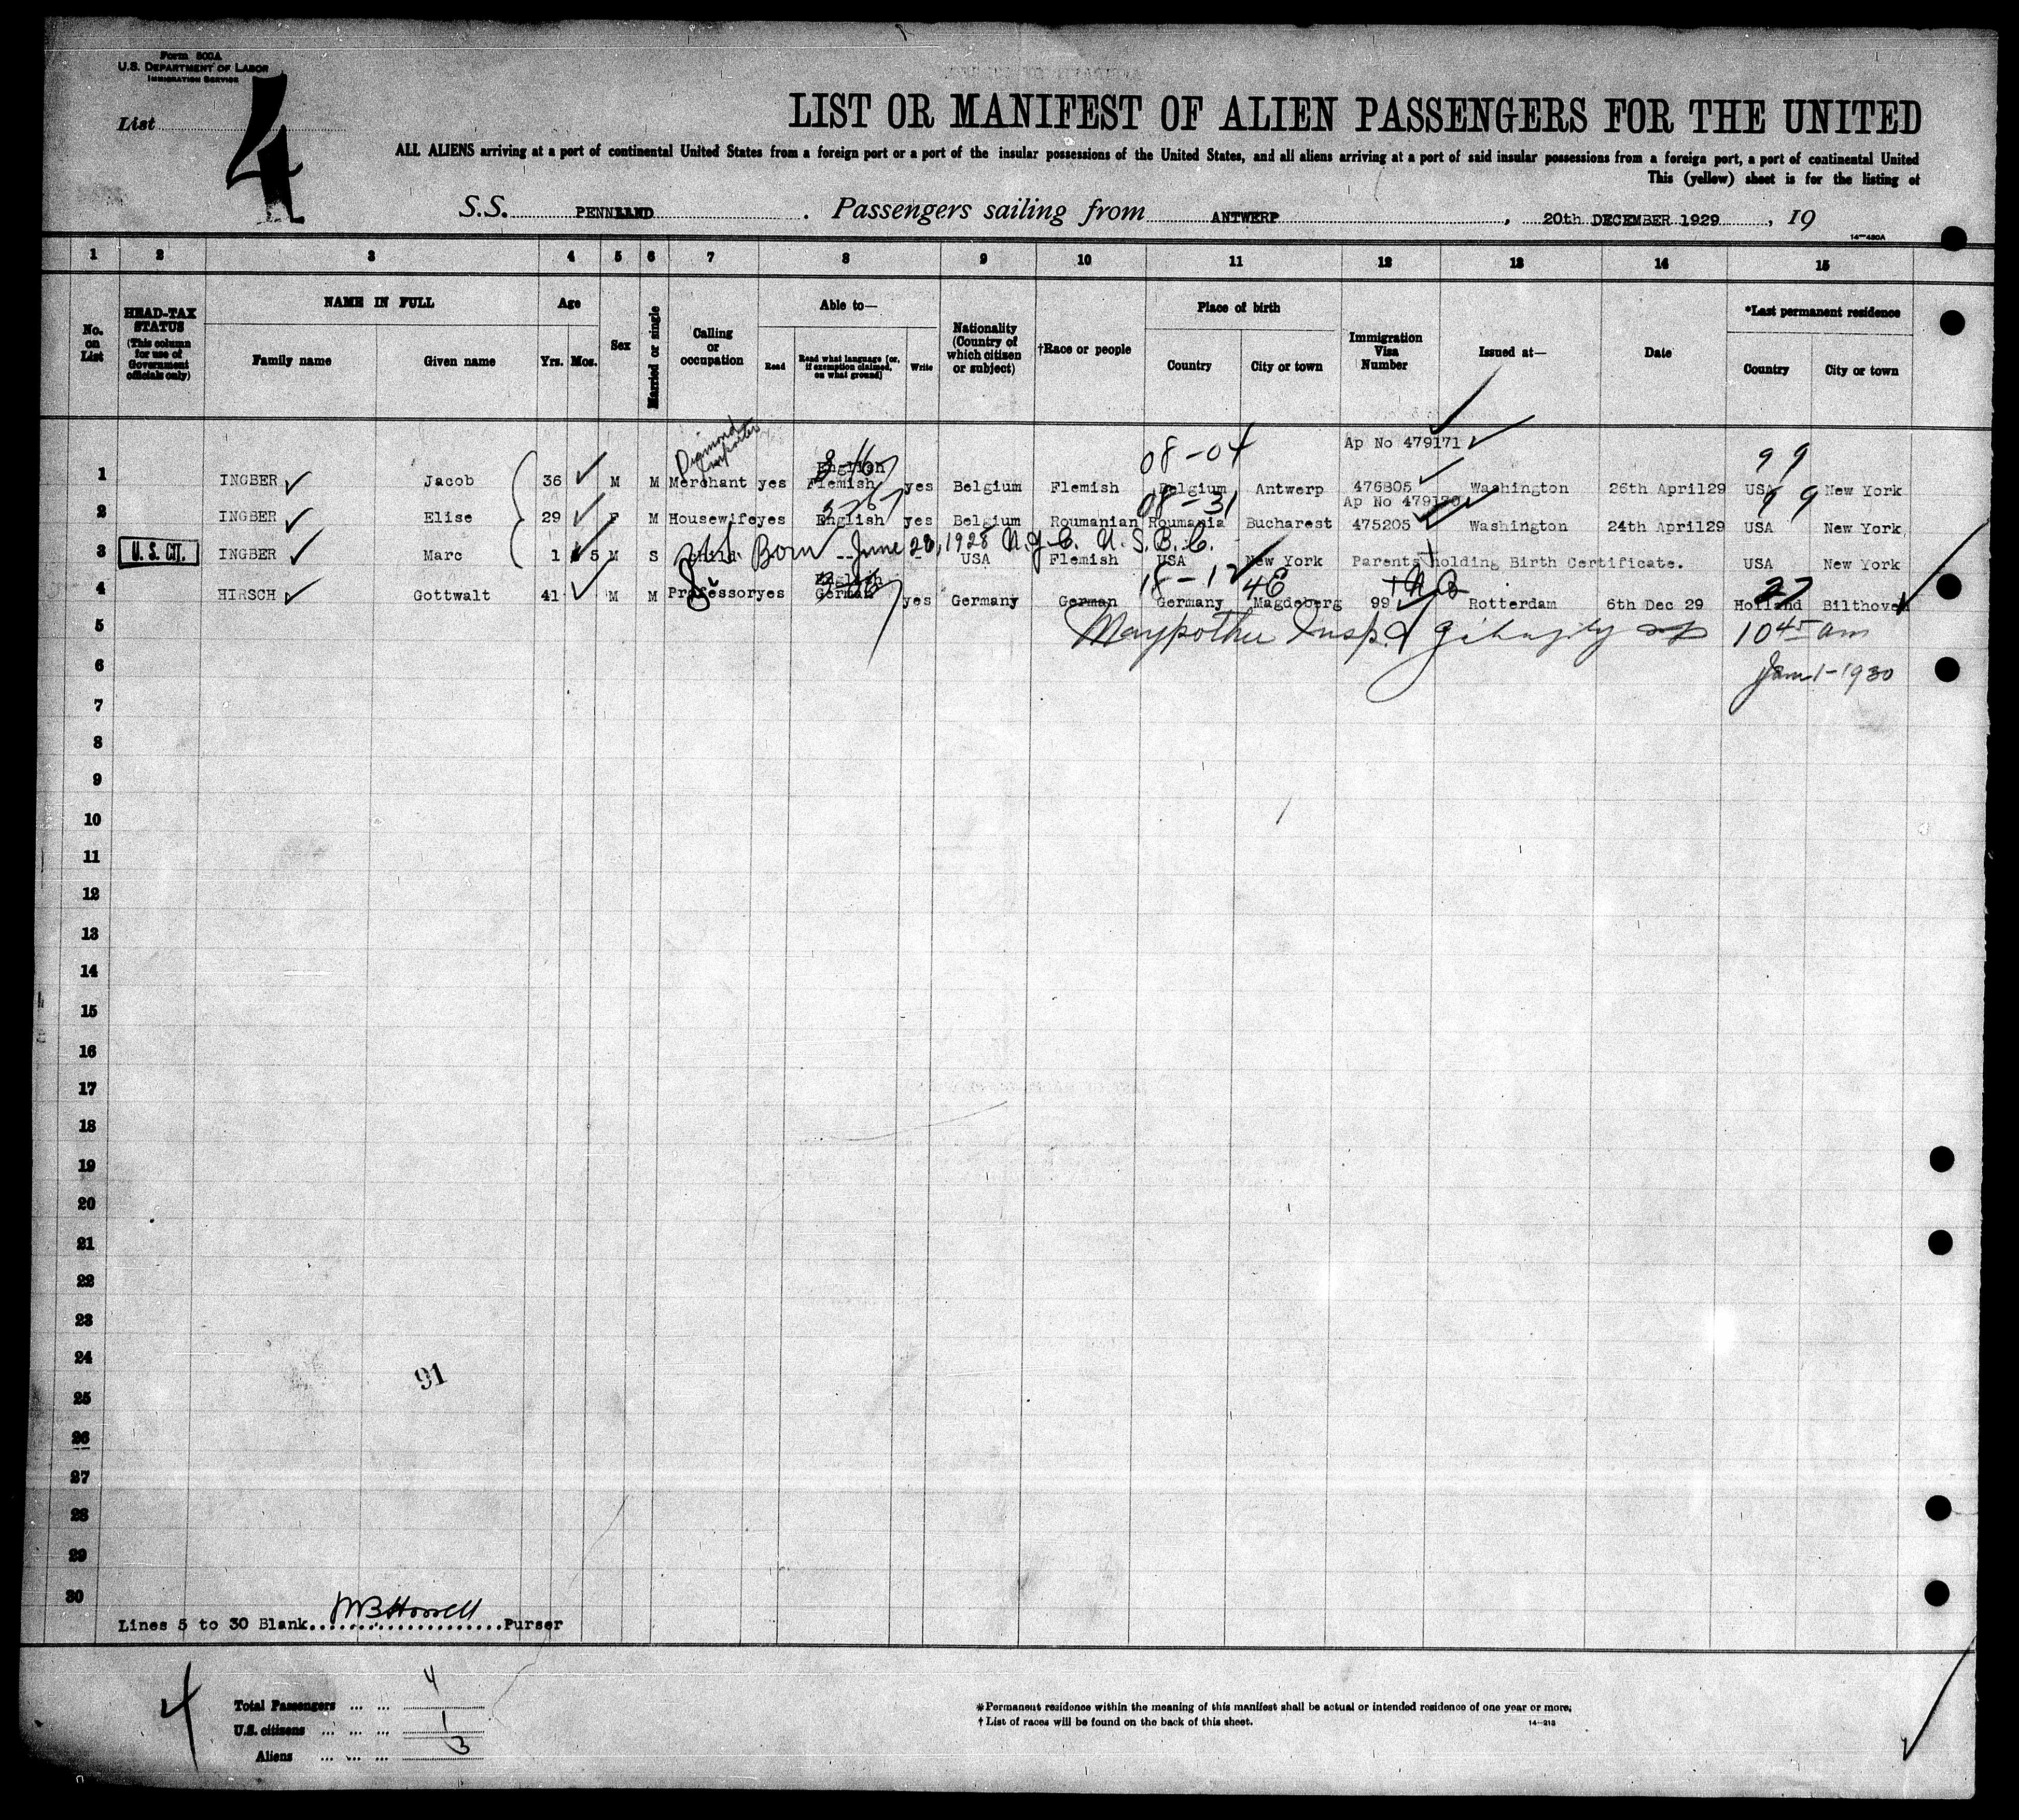 Form 500A
U.S. DEPARTMENT OF LABOR
IMMIGRATION SERVICE
List 4
LIST OR MANIFEST OF ALIEN PASSENGERS FOR THE UNITED
ALL ALIENS arriving at a port of continental United States from a foreign port or a port of the insular possessions of the United States, and all aliens arriving at a port of said insular possessions from a foreign port, a port of continental United
This (yellow) sheet is for the listing of
S.S. PENNLAND. Passengers sailing from ANTWERP, 20th DECEMBER 1929, 19
14—480A
1 2 3 4 5 6 7 8 9 10 11 12 13 14 15
No. on List
HEAD-TAX STATUS (This column for use of Government officials only)
NAME IN FULL
Family name Given name
Age
Yrs. Mos.
Sex
Married or single
Calling or occupation
Able to—
Read Read what language [or, if exemption claimed, on what ground] Write
Nationality (Country of which citizen or subject)
†Race or people
Place of birth
Country City or town
Immigration Visa Number
Issued at—
Date
*Last permanent residence
Country City or town
Diamond Importer
Ap No 479171
08-04 99
English
1 INGBER Jacob 36 M M Merchant yes Flemish yes Belgium Flemish Belgium Antwerp 476805 Washington 26th April29 USA New York
08-31 Ap No 479170 99
2 INGBER Elise 29 F M Housewife yes English yes Belgium Roumanian Roumania Bucharest 475205 Washington 24th April29 USA New York
Born June 28, 1928 N.Y.C. U.S.B.C.
3 U.S. CIT. INGBER Marc 1 5 M S Child -- -- USA Flemish USA New York Parents holding Birth Certificate. USA New York
English
18-12 4E 27
4 HIRSCH Gottwalt 41 M M Professor yes German yes Germany German Germany Magdeberg 99 Rotterdam 6th Dec 29 Holland Bilthoven
5 Insp. 10 45 am
6 Jan 1-1930
7
8
9
10
11
12
13
14
15
16
17
18
19
20
21
22
23
24
91
25
26
27
28
29
30
Lines 5 to 30 Blank.....................Purser
4
Total Passengers ... ... 4
U.S. citizens ... ... ... 1
Aliens ... ... ... 3
*Permanent residence within the meaning of this manifest shall be actual or intended residence of one year or more.
†List of races will be found on the back of this sheet.
14—213